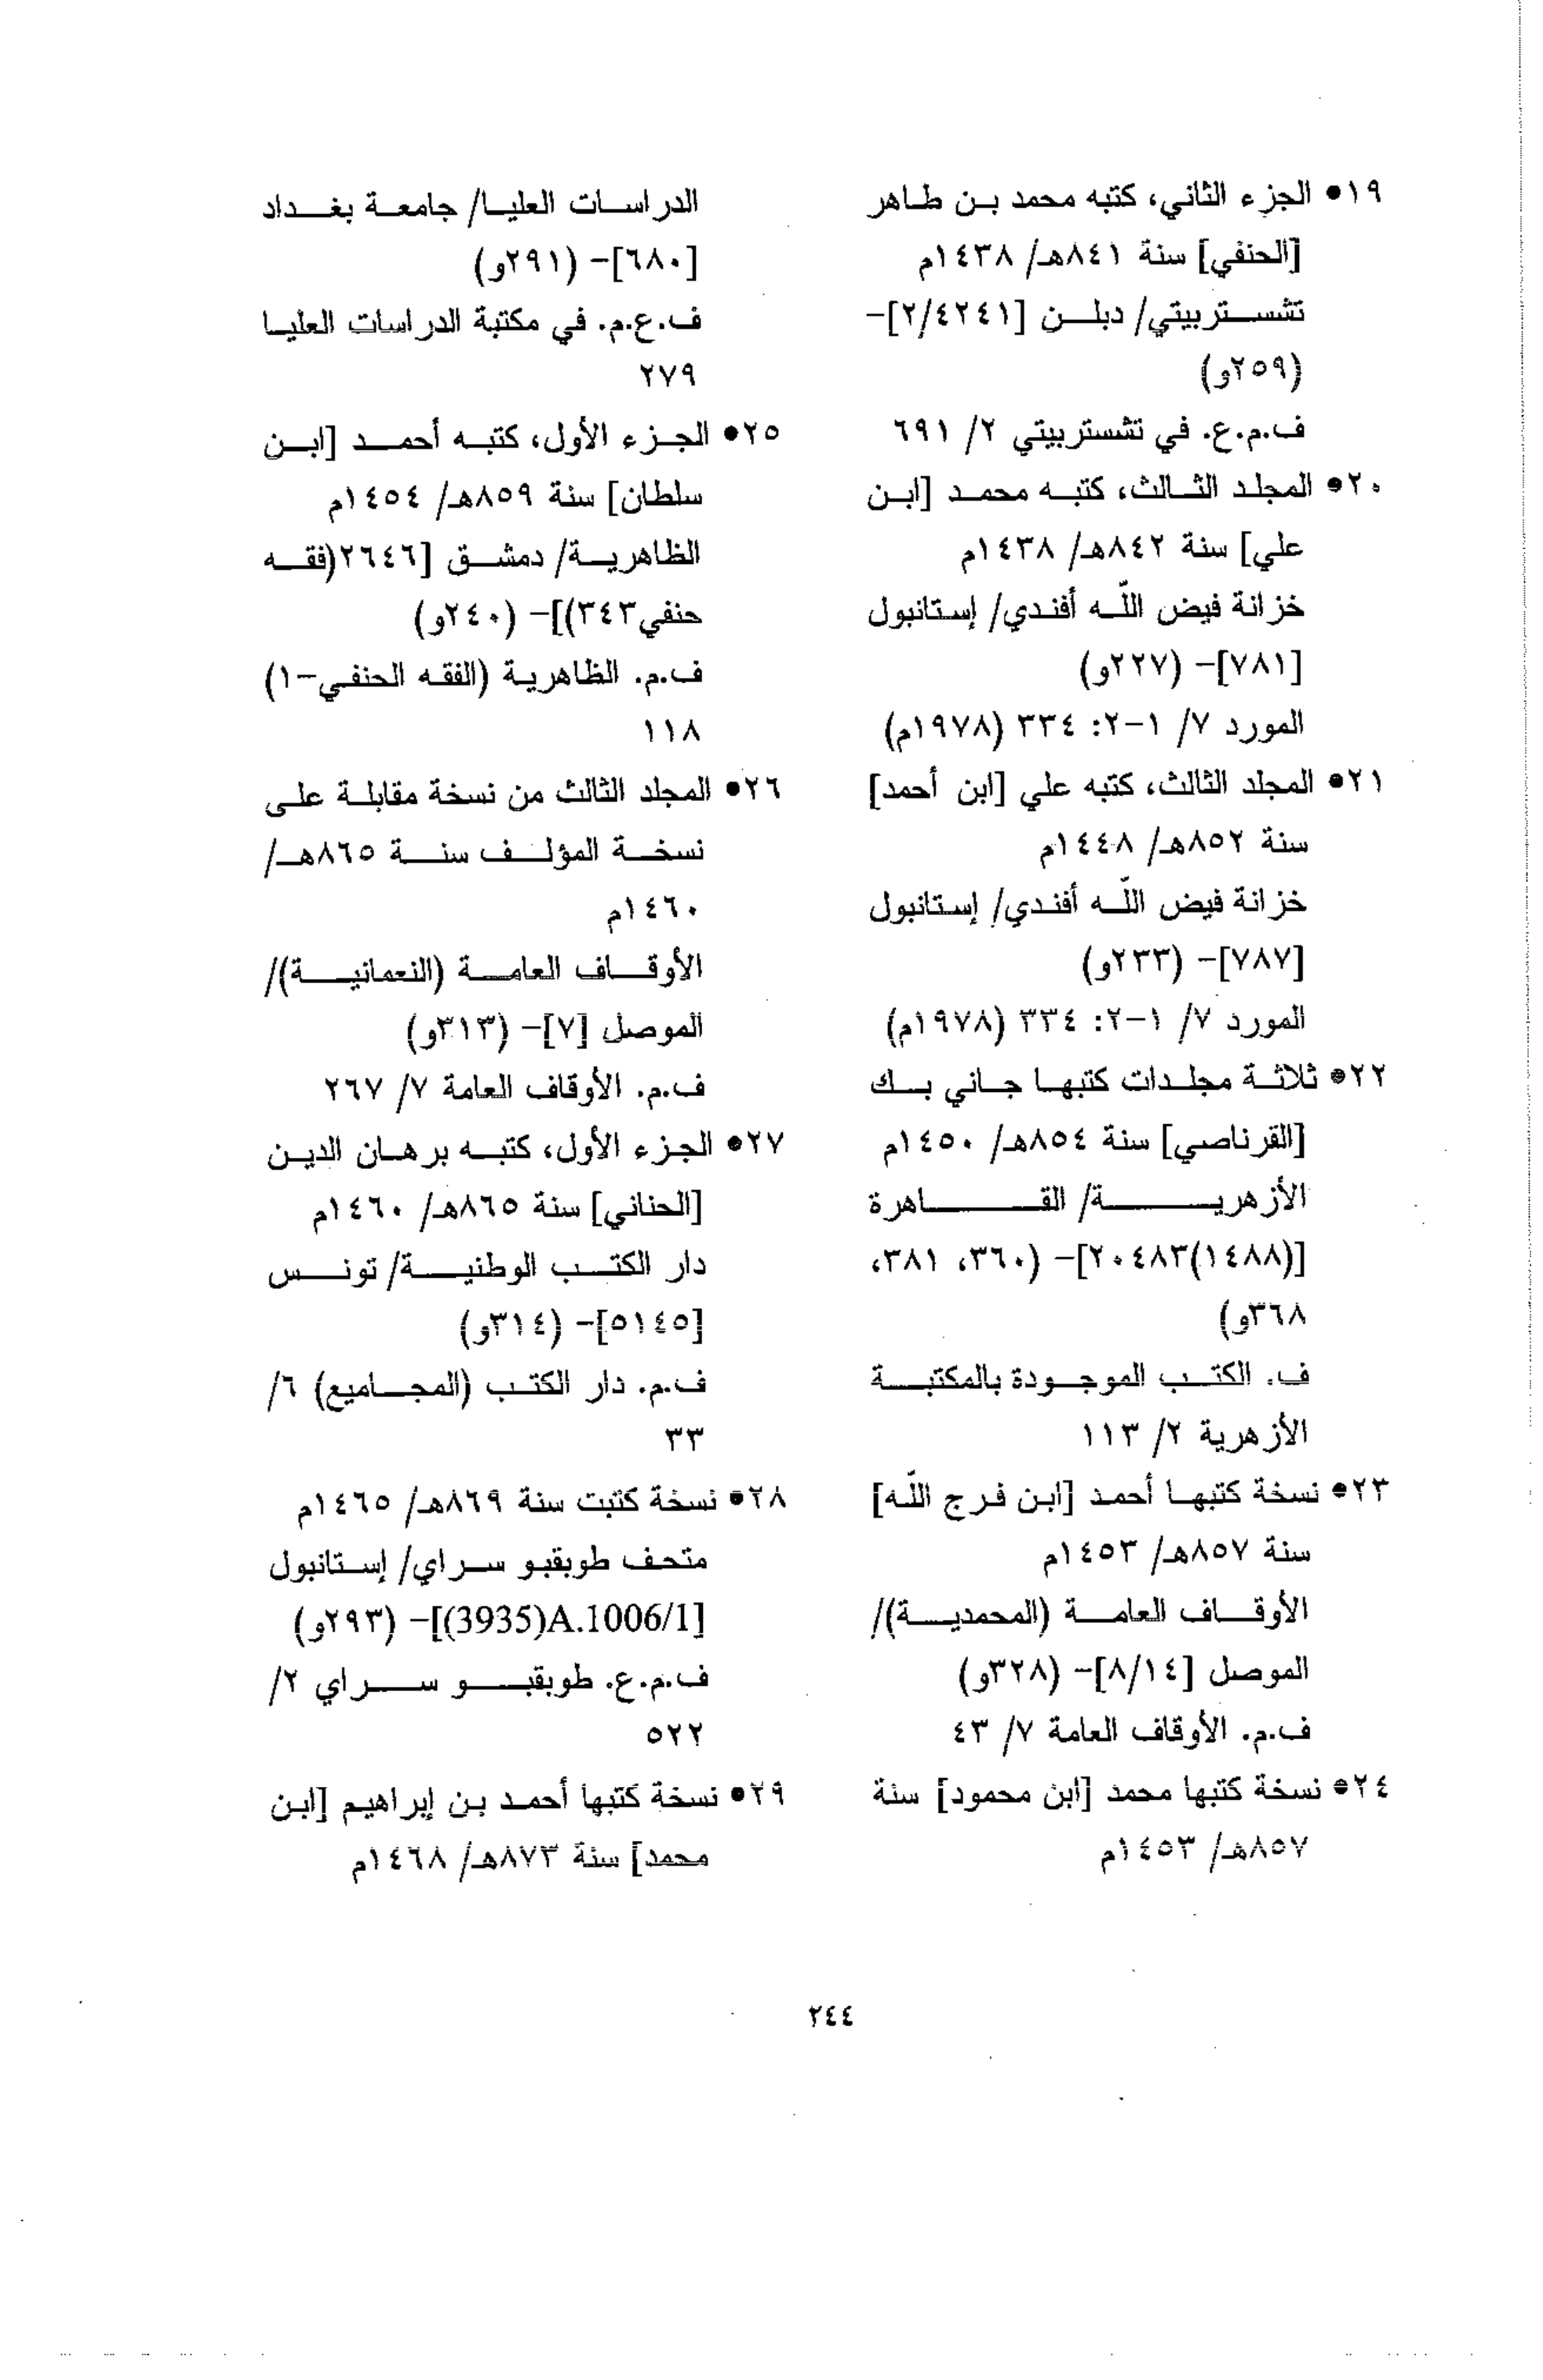 ١٩● الجزء الثاني، كتبه محمد بن طاهر
[الحنفي] سنة ٨٤١هـ/ ١٤٣٨م
تشستربيتي/ دبلن [٢/٤٢٤١]-
(٢٥٩و)
ف.م.ع. في تشستربيتي ٢/ ٦٩١
٢٠● المجلد الثالث، كتبه محمد [ابن
علي] سنة ٨٤٢هـ/ ١٤٣٨م
خزانة فيض اللّه أفندي/ إستانبول
[٧٨١]- (٢٢٧و)
المورد ٧/ ١-٢: ٣٣٤ (١٩٧٨م)
٢١● المجلد الثالث، كتبه علي [ابن أحمد]
سنة ٨٥٢هـ/ ١٤٤٨م
خزانة فيض اللّه أفندي/ إستانبول
[٧٨٧]- (٢٣٣و)
المورد ٧/ ١-٢: ٣٣٤ (١٩٧٨م)
٢٢● ثلاثة مجلدات كتبها جاني بك
[القرناصي] سنة ٨٥٤هـ/ ١٤٥٠م
الأزهرية/ القاهرة
[(١٤٨٨)٢٠٤٨٣]- (٣٦٠، ٣٨١،
٣٦٨و)
ف. الكتب الموجودة بالمكتبة
الأزهرية ٢/ ١١٣
٢٣● نسخة كتبها أحمد [ابن فرج اللّه]
سنة ٨٥٧هـ/ ١٤٥٣م
الأوقاف العامة (المحمدية)/
الموصل [٨/١٤]- (٣٢٨و)
ف.م. الأوقاف العامة ٧/ ٤٣
٢٤● نسخة كتبها محمد [ابن محمود] سنة
٨٥٧هـ/ ١٤٥٣م
الدراسات العليا/ جامعة بغداد
[٦٨٠]- (٢٩١و)
ف.ع.م. في مكتبة الدراسات العليا
٢٧٩
٢٥● الجزء الأول، كتبه أحمد [ابن
سلطان] سنة ٨٥٩هـ/ ١٤٥٤م
الظاهرية/ دمشق [٢٦٤٦(فقه
حنفي٣٤٣)]- (٢٤٠و)
ف.م. الظاهرية (الفقه الحنفي-١)
١١٨
٢٦● المجلد الثالث من نسخة مقابلة على
نسخة المؤلف سنة ٨٦٥هـ/
١٤٦٠م
الأوقاف العامة (النعمانية)/
الموصل [٧]- (٣١٣و)
ف.م. الأوقاف العامة ٧/ ٢٦٧
٢٧● الجزء الأول، كتبه برهان الدين
[الحناني] سنة ٨٦٥هـ/ ١٤٦٠م
دار الكتب الوطنية/ تونس
[٥١٤٥]- (٣١٤و)
ف.م. دار الكتب (المجاميع) ٦/
٣٣
٢٨● نسخة كتبت سنة ٨٦٩هـ/ ١٤٦٥م
متحف طوبقبو سراي/ إستانبول
[A.1006/1(3935)]- (٢٩٣و)
ف.م.ع. طوبقبو سراي ٢/
٥٢٢
٢٩● نسخة كتبها أحمد بن إبراهيم [ابن
محمد] سنة ٨٧٣هـ/ ١٤٦٨م
٢٤٤